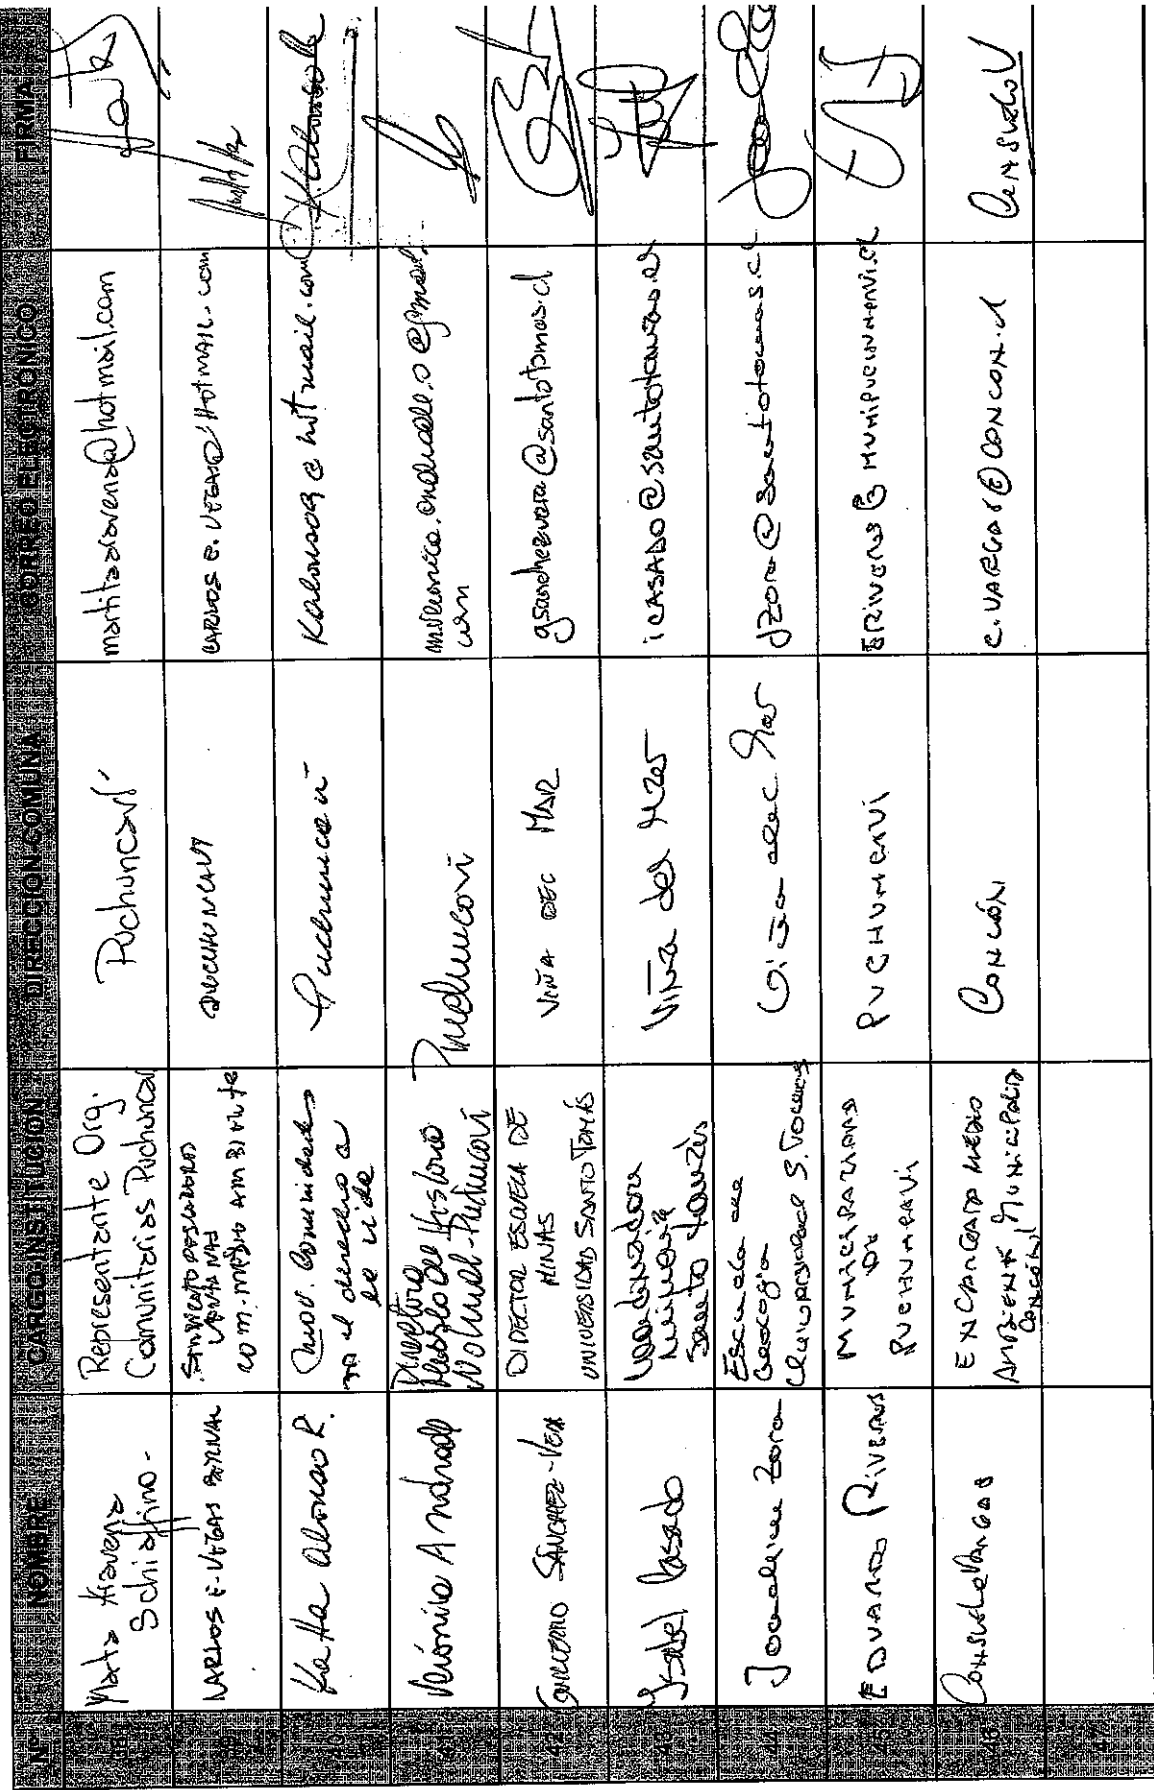 N° NOMBRE CARGO/INSTITUCIÓN DIRECCIÓN-COMUNA CORREO ELECTRONICO FIRMA
Marta Aravena
Schiaffino.-
Representante Org.
Comunitarias Puchuncaví
Puchuncaví
martitaaravena@hotmail.com
CARLOS E. VEGAS
SINDICATO PESCADORES
VENTANAS
COM. MEDIO AMBIENTE
PUCHUNCAVI
CARLOS E. VEGAS@HOTMAIL.COM
Katta Alonso R.
Mov. Comunidades
por el derecho a
la vida
Puchuncaví
Kalonsoq@hotmail.com
K. Alonso
41
Verónica Andrade
Directora
Museo de Historia
Natural-Puchuncaví
Puchuncaví
com
42
GUILLERMO SÁNCHEZ-VERA
DIRECTOR ESCUELA DE
MINAS
UNIVERSIDAD SANTO TOMÁS
VIÑA DEL MAR
gsanchezvera@santotomas.cl
43
Isabel Casado
Coordinadora
Minería
Santo Tomás
Viña del Mar
iCASADO@santotomas.cl
44
Jocqueline Zora
Escuela de
Geología
Universidad S. Tomás
Viña del Mar
jzora@santotomas.cl
EDUARDO RIVEROS
MUNICIPALIDAD
DE
PUCHUNCAVI
PUCHUNCAVI
ERIVEROS@MUNIPUCHUNCAVI.CL
CONSUELO VARGAS
ENCARGADA MEDIO
AMBIENTE MUNICIPALIDAD
CONCÓN
CONCÓN
C.VARGAS@CONCON.cl
CONSUELO V
47